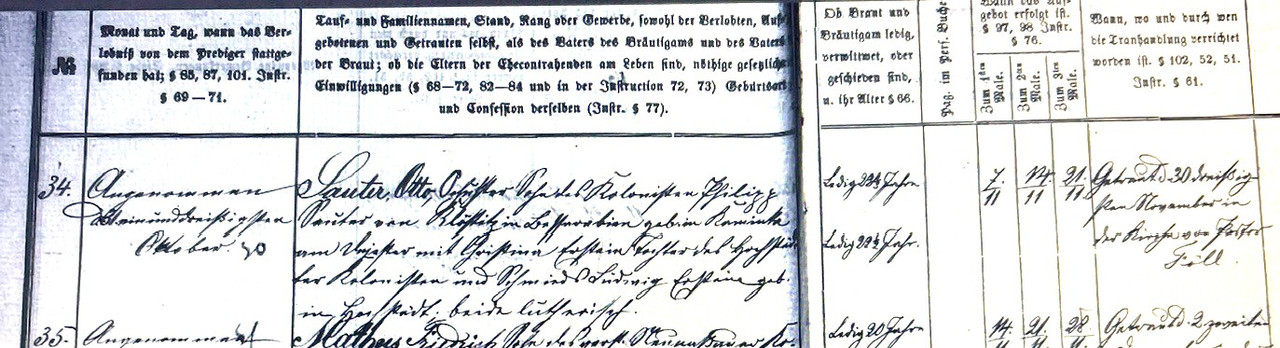 №
Monat und Tag, wann das Ver-
lobniß von dem Prediger stattge-
funden hat; § 85, 87, 101. Instr.
§ 69—71.
Tauf- und Familiennamen, Stand, Rang oder Gewerbe, sowohl der Verlobten, Auf-
gebotenen und Getrauten selbst, als des Vaters des Bräutigams und des Vaters
der Braut; ob die Eltern der Ehecontrahenden am Leben sind, nöthige gesetzliche
Einwilligungen (§ 68—72, 82—84 und in der Instruction 72, 73) Geburtsort
und Confession derselben (Instr. § 77).
Ob Braut und
Bräutigam ledig,
verwittwet, oder
geschieden sind,
u. ihr Alter § 66.
Pag. im Pers. Buche
Wann das Auf-
gebot erfolgt ist.
§ 97, 98 Instr.
§ 76.
Zum 1ten Male.
Zum 2ten Male.
Zum 3ten Male.
Wann, wo und durch wen
die Trauhandlung verrichtet
worden ist. § 102, 52, 51.
Instr. § 61.
34.
Angenommen
einunddreißigsten
Oktober.
Sauter, Otto, Sohn des Kolonisten Philipp
Sauter von Klöstitz in Bessarabien geb. in Kaminka
am Dnjester mit Christina Erstein Tochter des Hochstäd-
ter Kolonisten und Schmieds Ludwig Erstein geb.
in Hochstädt. beide lutherisch.
Ledig 23½ Jahre
Ledig 22½ Jahr.
7/11
14/11
21/11
Getraut d. 30 dreißig-
sten November in
der Kirche von Pastor
Föll.
35.
Angenommen
Matheis Friedrich Sohn des verst. Neunassauer Ko-
Ledig 20 Jahre
14/11
21/11
28/11
Getraut d. 2 zweiten